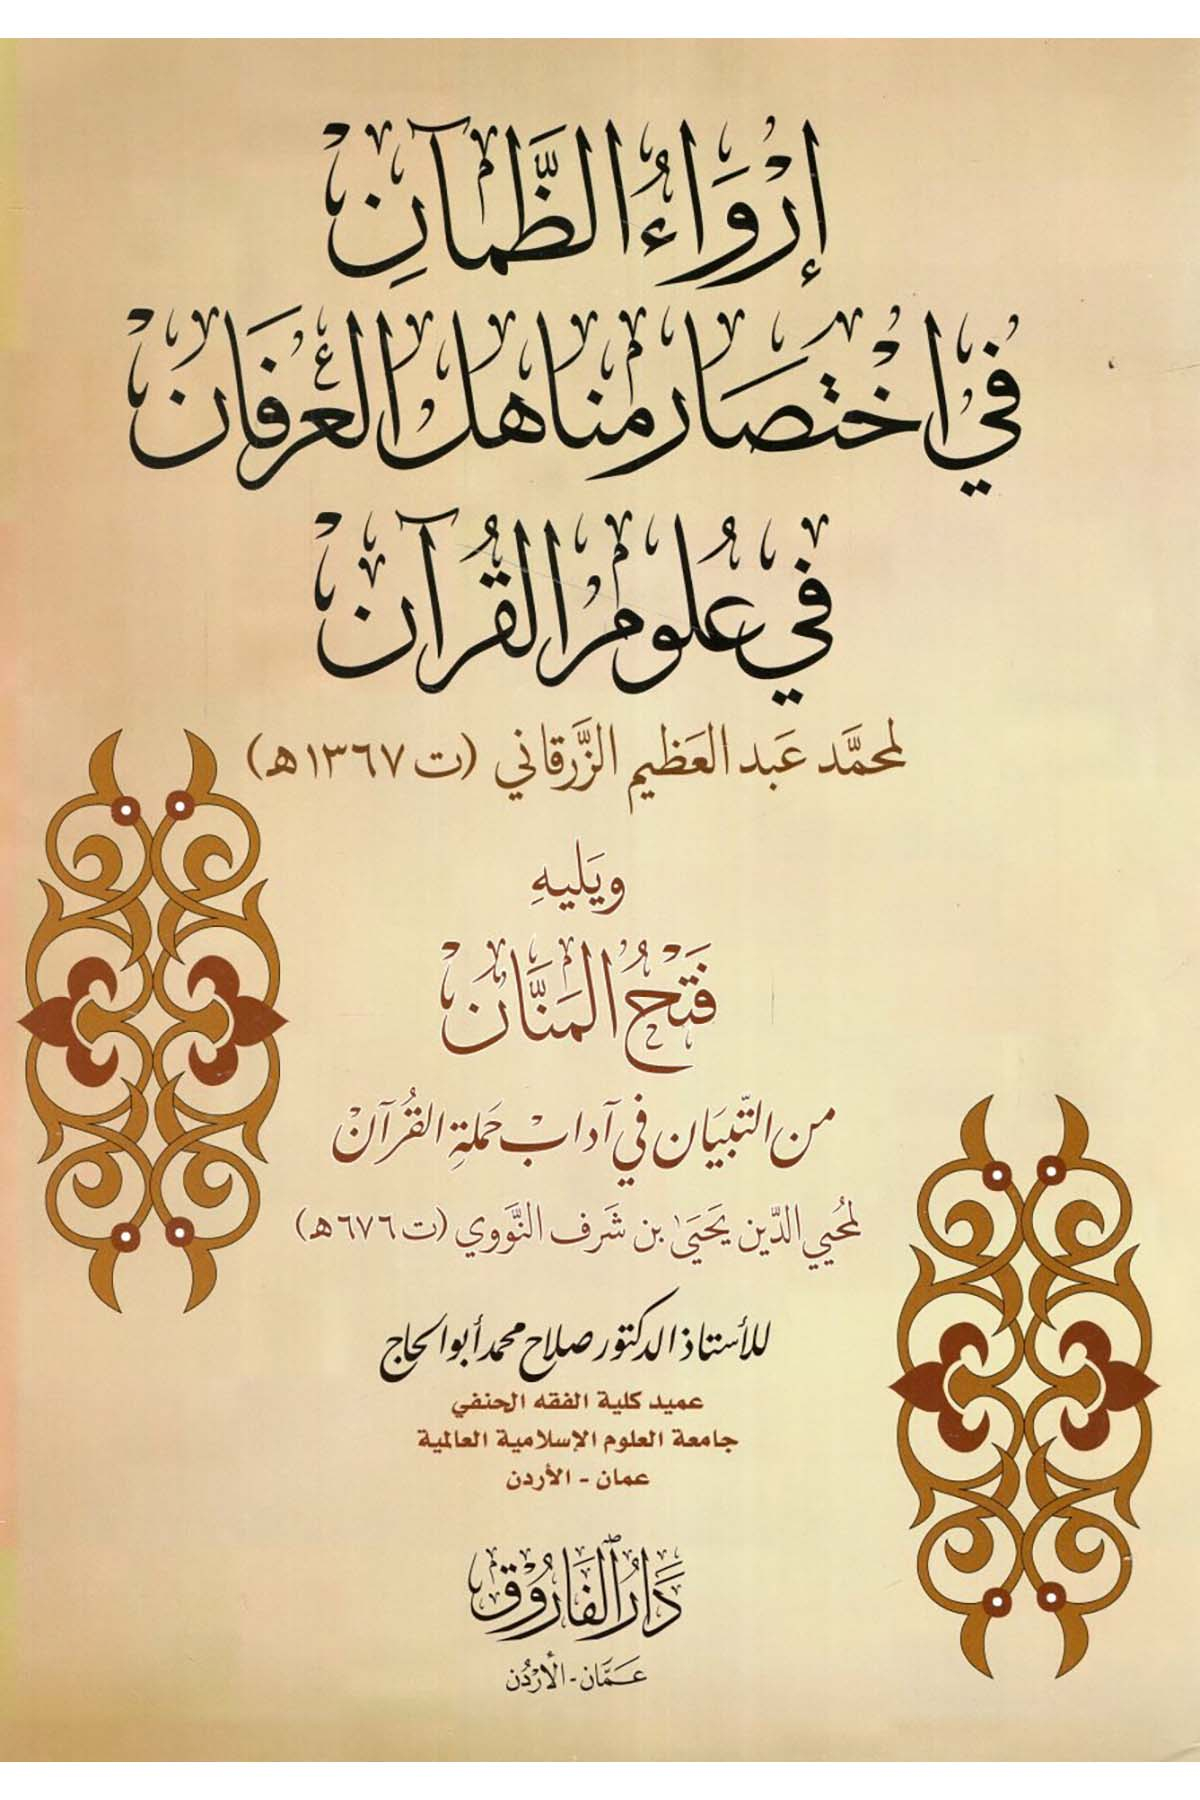 إِرْوَاءُ الظَّمآنِ
فِي اخْتصَار مناهل العِرفَان
في عُلومِ القُرآن
لمحمَّد عَبد العَظيم الزَّرقاني (ت ١٣٦٧هـ)
ويَليهِ
فَتحُ المَنَّان
من التّبيَان في آداب حَملةِ القُرآن
لمُحيي الدِّين يَحيَى بن شَرف النَّووي (ت ٦٧٦هـ)
للأستاذ الدكتور صلاح محمد أبو الحاج
عميد كلية الفقه الحنفي
جامعة العلوم الإسلامية العالمية
عمان - الأردن
دَارُ الفَارُوق
عَمَّان - الأردُن